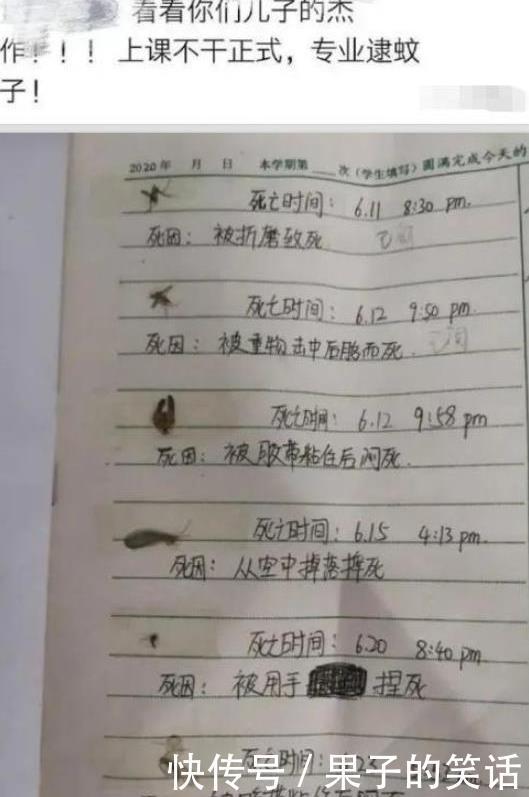 看看你们儿子的杰
作！！！上课不干正式，专业逮蚊
子！
2020年 月 日 本学期第 次（学生填写）圆满完成今天的
死亡时间：6.11 8:30 pm.
死因：被折磨致死
死亡时间：6.12 9:50 pm.
死因：被重物击中后脑而死.
死亡时间：6.12 9:58 pm
死因：被胶带粘住后闷死.
死亡时间：6.15 4:13 pm.
死因：从空中掉落摔死
死亡时间：6.20 8:40 pm
死因：被用手 捏死
死亡时间：
快传号 / 果子的笑话